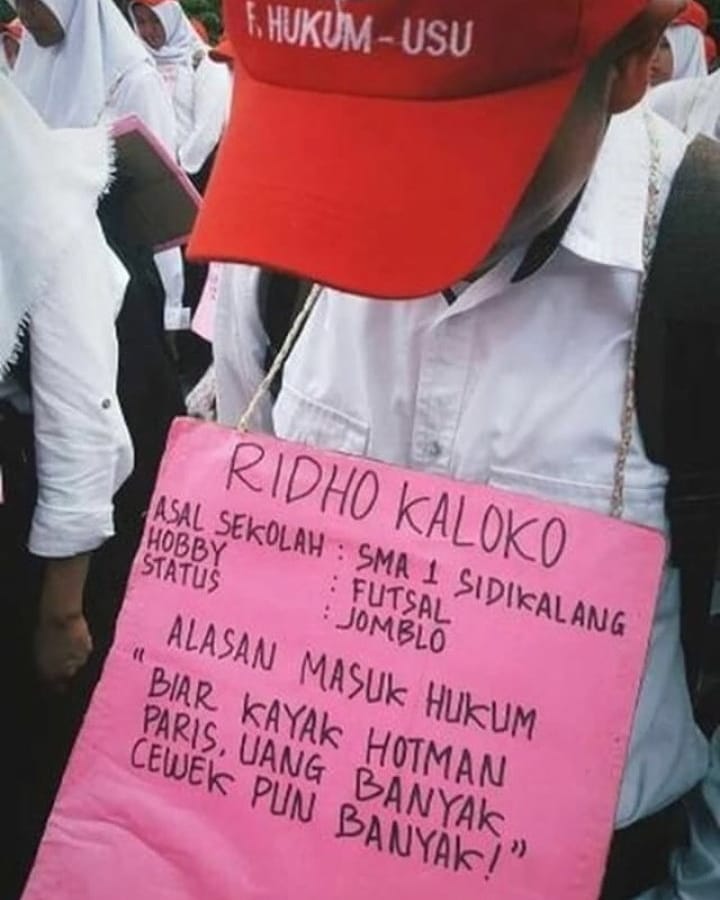 F. HUKUM - USU
RIDHO KALOKO
ASAL SEKOLAH : SMA 1 SIDIKALANG
HOBBY : FUTSAL
STATUS : JOMBLO
ALASAN MASUK HUKUM
"BIAR KAYAK HOTMAN
PARIS, UANG BANYAK
CEWEK PUN BANYAK!"